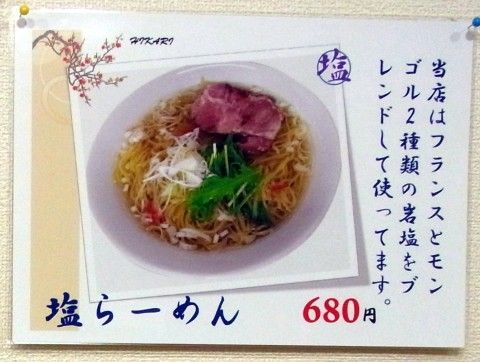 HIKARI
塩
当店はフランスとモン
ゴル2種類の岩塩をブ
レンドして使ってます。
塩らーめん
680円